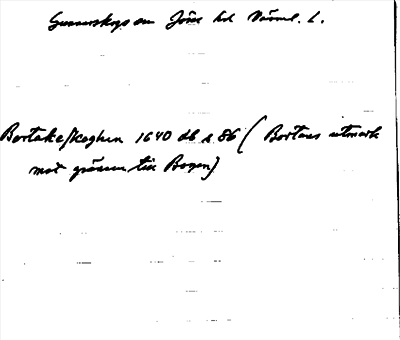 Gunnarskogs sn Jösse hd Värml. l.
Bortake/skoghen 1640 db s 86 ( Bortans utmark
mot gränsen till Bogen)